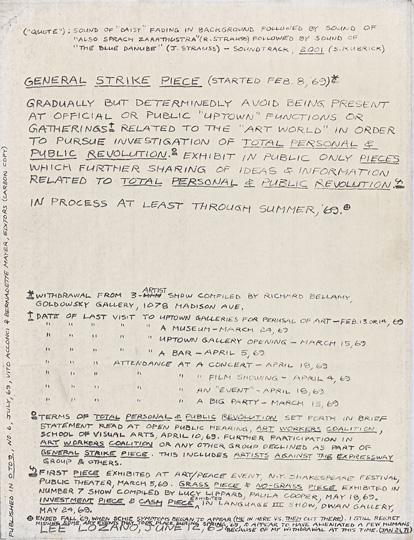 ("QUOTE"): SOUND OF "DAISY" FADING IN BACKGROUND FOLLOWED BY SOUND OF
"ALSO SPRACH ZARATHUSTRA" (R. STRAUSS) FOLLOWED BY SOUND OF
"THE BLUE DANUBE" (J. STRAUSS) – SOUNDTRACK, 2001 (S. KUBRICK)
GENERAL STRIKE PIECE (STARTED FEB. 8, 69)*
GRADUALLY BUT DETERMINEDLY AVOID BEING PRESENT
AT OFFICIAL OR PUBLIC "UPTOWN" FUNCTIONS OR
GATHERINGS† RELATED TO THE "ART WORLD" IN ORDER
TO PURSUE INVESTIGATION OF TOTAL PERSONAL &
PUBLIC REVOLUTION. EXHIBIT IN PUBLIC ONLY PIECES
WHICH FURTHER SHARING OF IDEAS & INFORMATION
RELATED TO TOTAL PERSONAL & PUBLIC REVOLUTION.
IN PROCESS AT LEAST THROUGH SUMMER, '69.
* WITHDRAWAL FROM 3-ARTIST SHOW COMPILED BY RICHARD BELLAMY,
GOLDOWSKY GALLERY, 1078 MADISON AVE.
† DATE OF LAST VISIT TO UPTOWN GALLERIES FOR PERUSAL OF ART – FEB. 13 OR 14, 69
" " " " " A MUSEUM – MARCH 24, 69
" " " " " UPTOWN GALLERY OPENING – MARCH 15, 69
" " " " " A BAR – APRIL 5, 69
" " " ATTENDANCE AT A CONCERT – APRIL 18, 69
" " " " " FILM SHOWING – APRIL 4, 69
" " " " " AN "EVENT" – APRIL 18, 69
" " " " " A BIG PARTY – MARCH 15, 69
TERMS OF TOTAL PERSONAL & PUBLIC REVOLUTION SET FORTH IN BRIEF
STATEMENT READ AT OPEN PUBLIC HEARING, ART WORKERS COALITION,
SCHOOL OF VISUAL ARTS, APRIL 10, 69. FURTHER PARTICIPATION IN
ART WORKERS COALITION OR ANY OTHER GROUP DECLINED AS PART OF
GENERAL STRIKE PIECE. THIS INCLUDES ARTISTS AGAINST THE EXPRESSWAY
GROUP & OTHERS.
FIRST PIECE EXHIBITED AT ART/PEACE EVENT, N.Y. SHAKESPEARE FESTIVAL,
PUBLIC THEATER, MARCH 5, 69. GRASS PIECE & NO-GRASS PIECE EXHIBITED IN
NUMBER 7 SHOW COMPILED BY LUCY LIPPARD, PAULA COOPER, MAY 18, 69.
INVESTMENT PIECE & CASH PIECE, EXHIBITED IN LANGUAGE III SHOW, DWAN GALLERY
MAY 24, 69.
ENDED FALL, 69, WHEN SCHIZ SYMPTOMS BEGAN TO APPEAR
LEE LOZANO, JUNE 12, 69.
PUBLISHED IN 0 TO 9, NO. 6, JULY, 69, VITO ACCONCI & BERNADETTE MAYER, EDITORS (CARBON COPY)